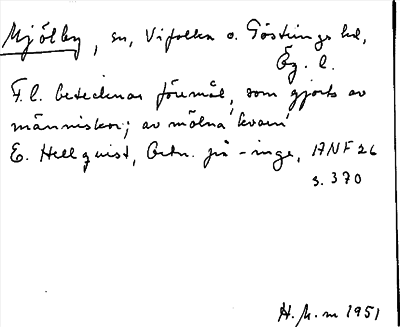 Mjölby, sn, Vifolka o. Göstrings hd,
Ög. l.
F. l. betecknar föremål, som gjorts av
människor; av mölna 'kvarn'
E. Hellquist, Ortn. på -inge, ANF 26
s. 370
H. M-m 1951